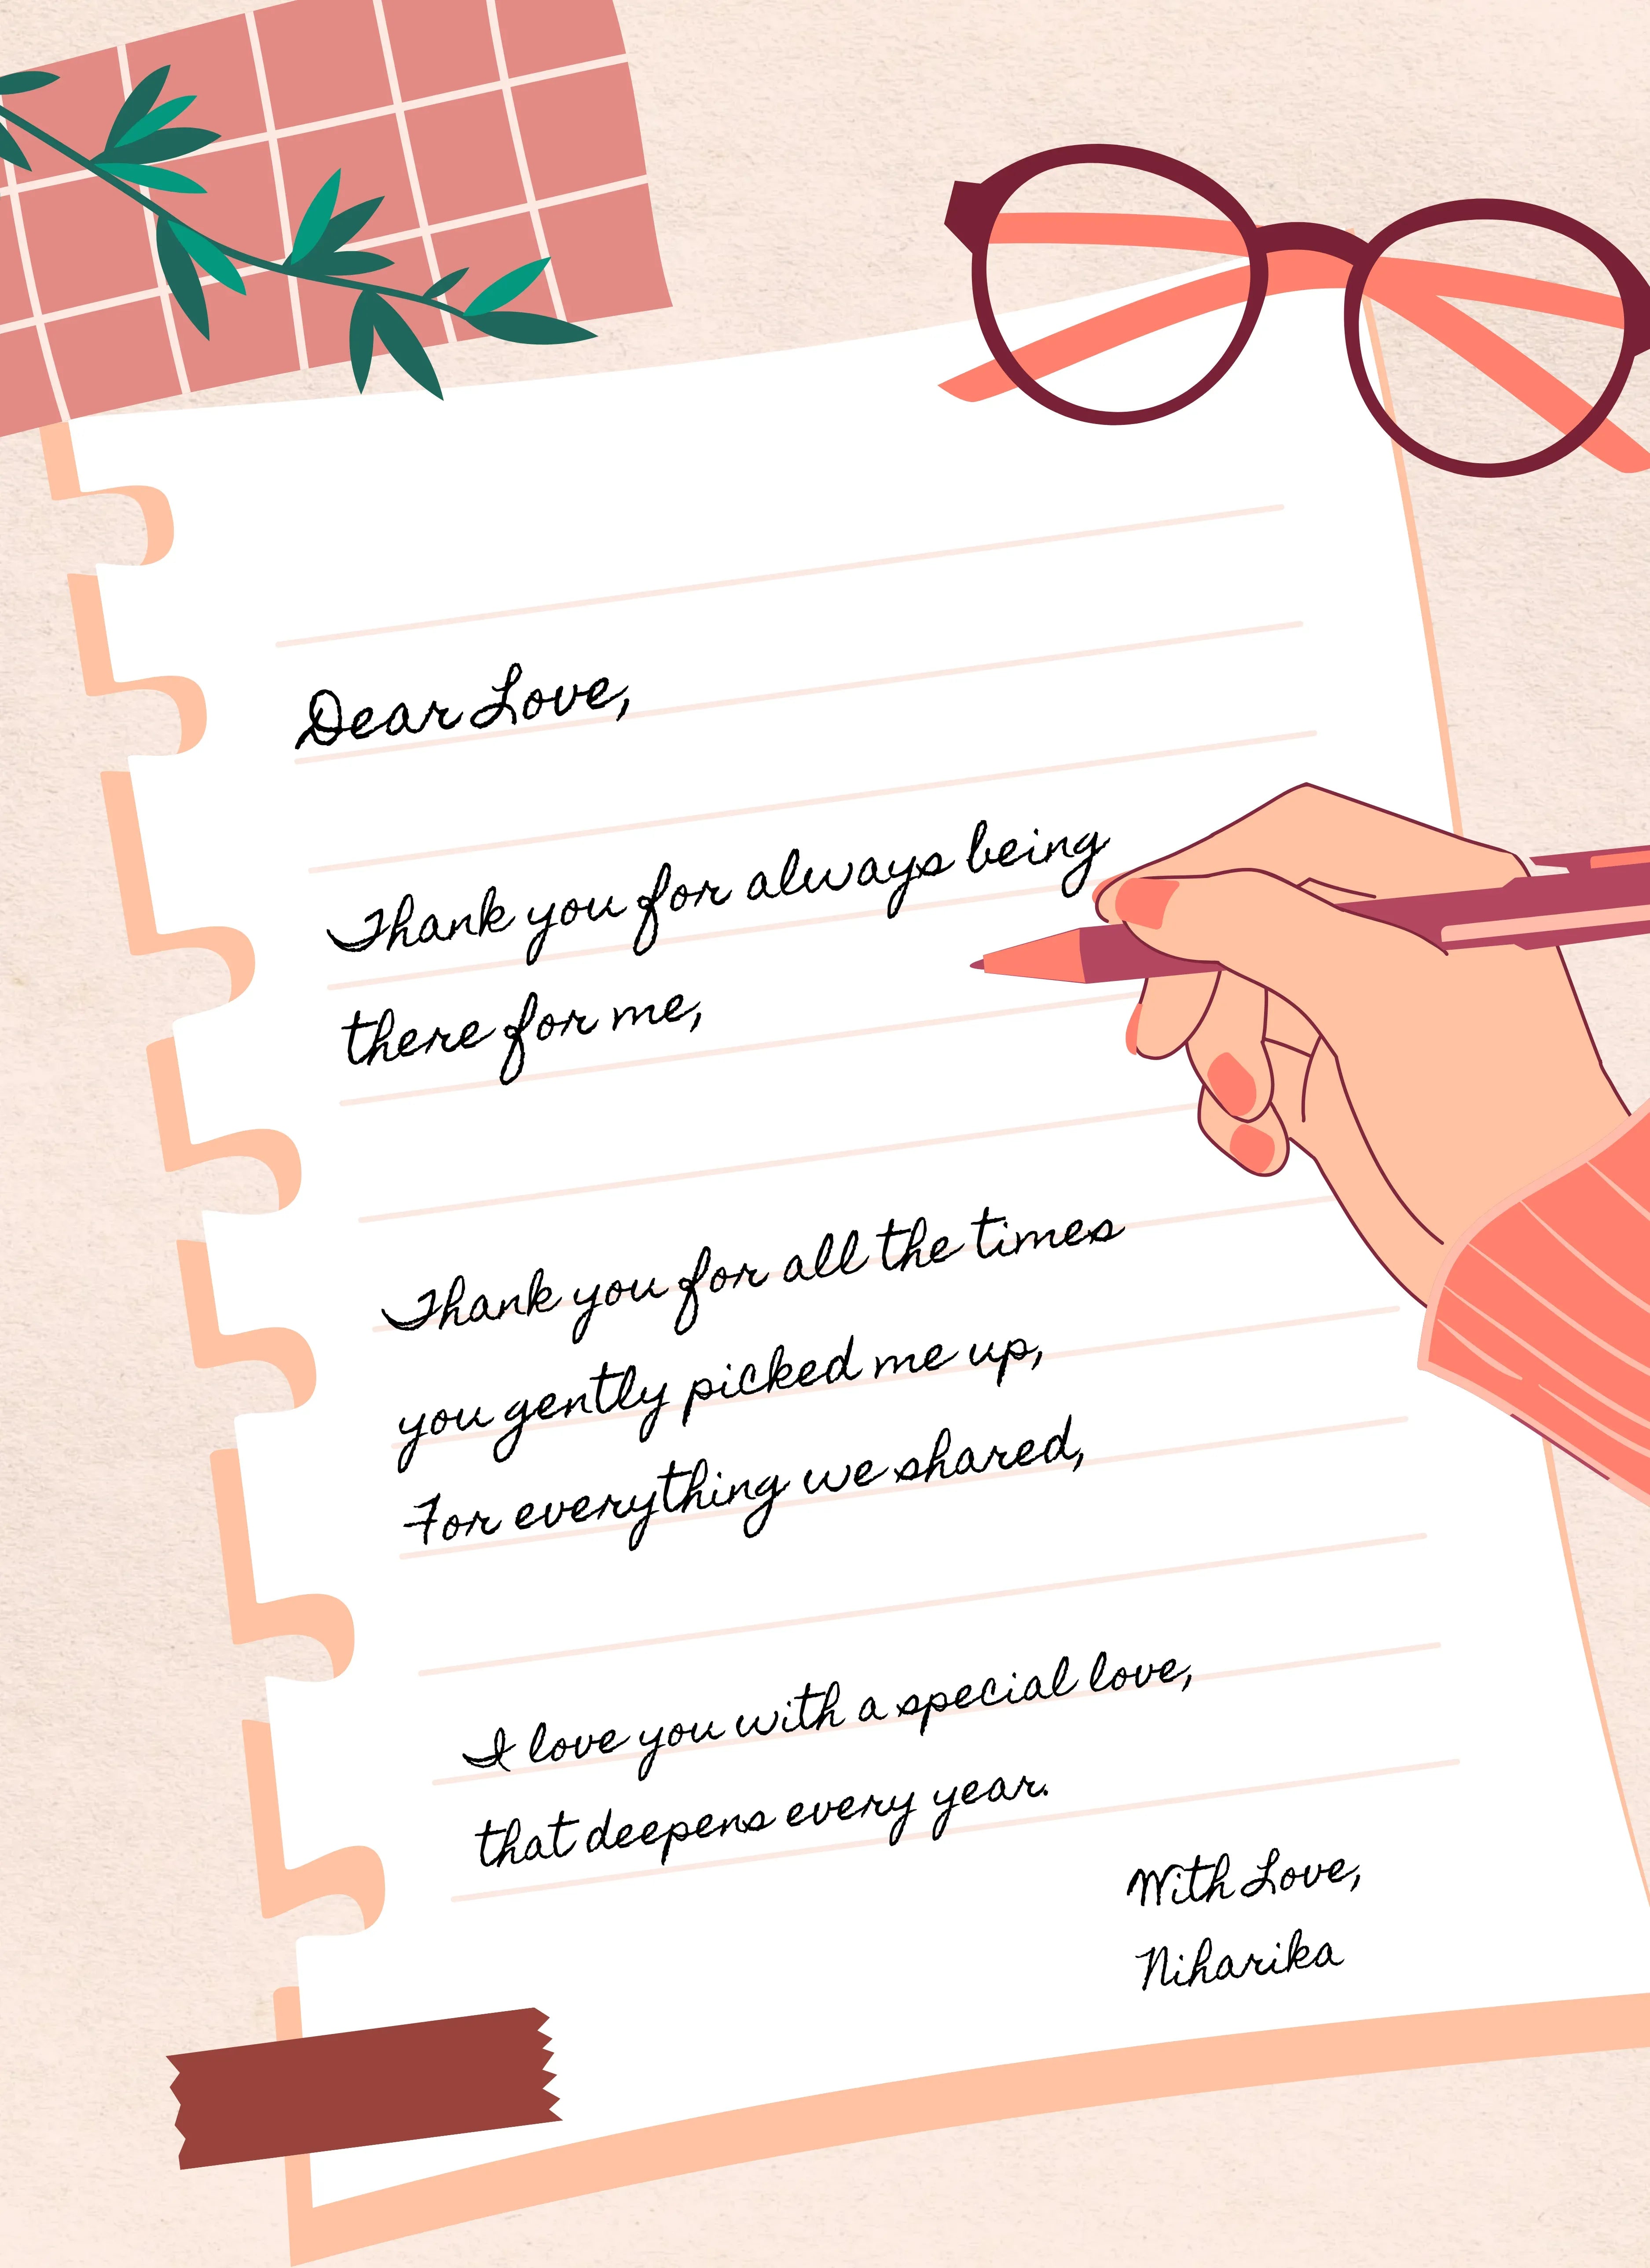 Dear Love,
Thank you for always being
there for me,
Thank you for all the times
you gently picked me up,
For everything we shared,
I love you with a special love,
that deepens every year.
With Love,
Niharika